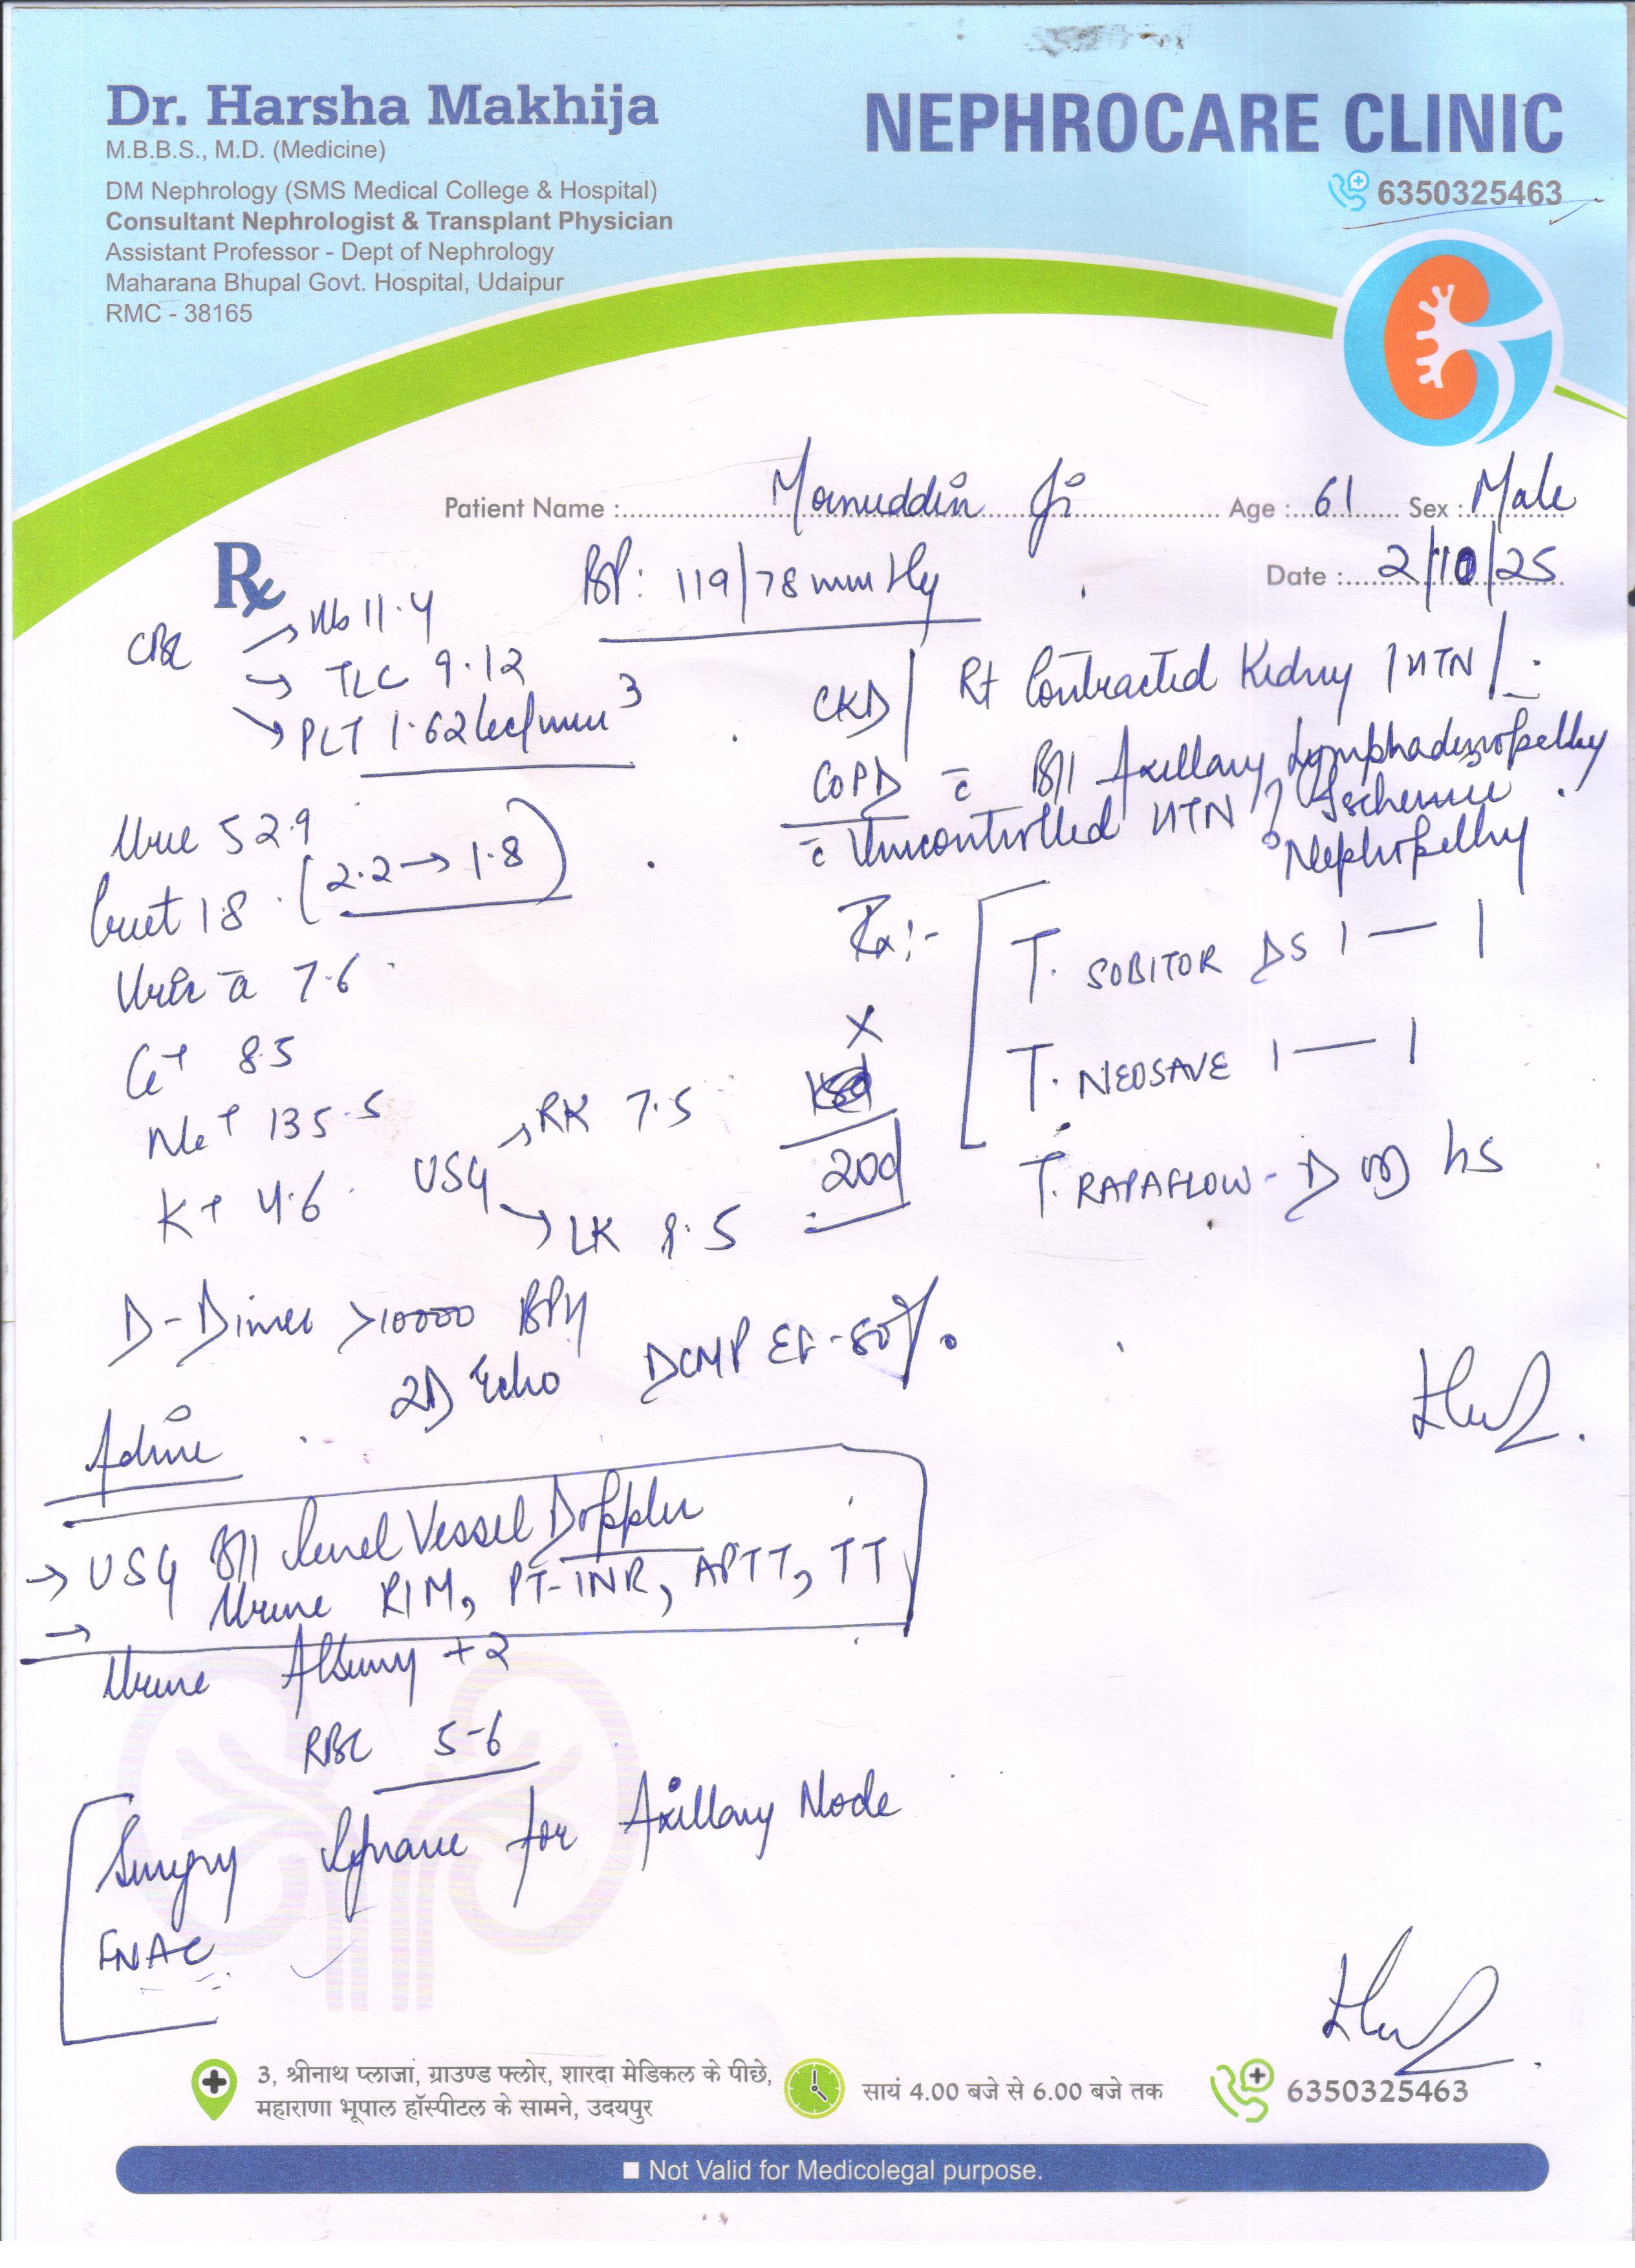 Dr. Harsha Makhija
M.B.B.S., M.D. (Medicine)
DM Nephrology (SMS Medical College & Hospital)
Consultant Nephrologist & Transplant Physician
Assistant Professor - Dept of Nephrology
Maharana Bhupal Govt. Hospital, Udaipur
RMC - 38165
NEPHROCARE CLINIC
6350325463
Patient Name : Moinuddin Ji Age : 61 Sex : Male
Date : 2/10/25
Rx
BP: 119/78 mmHg
CBC → Hb 11.4
→ TLC 9.12
→ PLT 1.62 lac/mm3
CKD / Rt Contracted Kidney / HTN /
COPD c̄ B/l Axillary Lymphadenopathy
c̄ Uncontrolled HTN ? Ischemic
Nephropathy
Urea 52.9
Creat 1.8 (2.2 → 1.8)
Uric a 7.6
Ca+ 8.5
Na+ 135.5
K+ 4.6
USG → RK 7.5
→ LK 9.5
Rx:-
T. SOBITOR DS 1 — 1
T. NEOSAVE 1 — 1
T. RAPAFLOW - D OD hS
X
20d
D-Dimer >10000 BPH
2D Echo DCMP EF - 50%
Advice
→ USG B/l Renal Vessel Doppler
→ Urine R/M, PT-INR, APTT, TT
Urine Albumin +2
RBC 5-6
Surgery for Axillary Node
FNAC
3, श्रीनाथ प्लाजा, ग्राउण्ड फ्लोर, शारदा मेडिकल के पीछे,
महाराणा भूपाल हॉस्पीटल के सामने, उदयपुर
सायं 4.00 बजे से 6.00 बजे तक
6350325463
Not Valid for Medicolegal purpose.